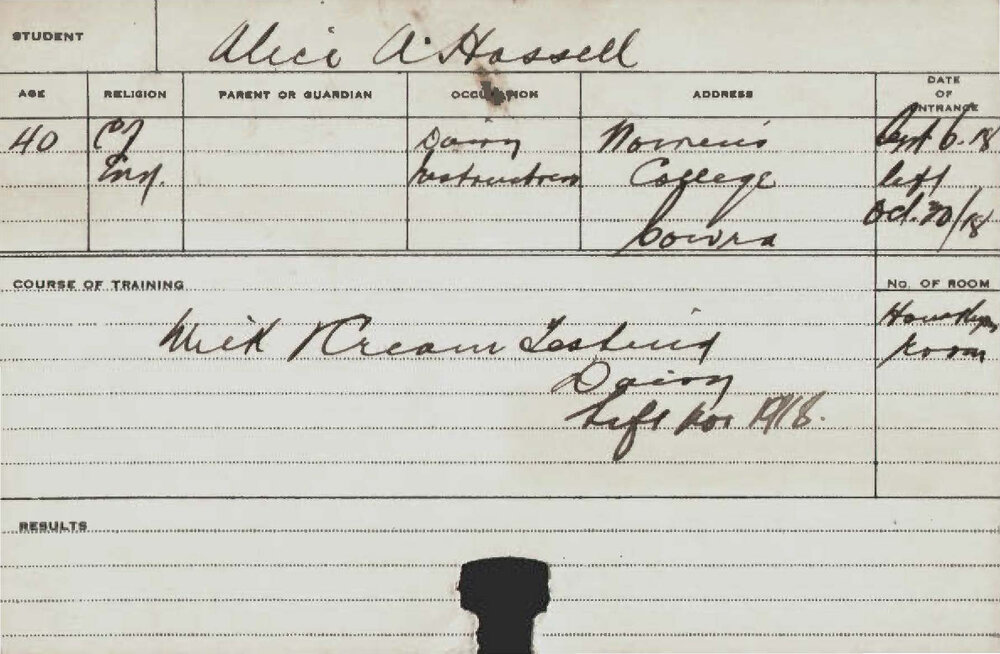 STUDENT Alice A. Hassell
AGE RELIGION PARENT OR GUARDIAN OCCUPATION ADDRESS DATE OF ENTRANCE
40 C of Dairy Women's Sept 6. 18
Eng. Instructress College left
Oct. 30/18
Cowra
COURSE OF TRAINING No. OF ROOM
Milk & Cream Testing
Room
Dairy
Left Nov 1918.
RESULTS